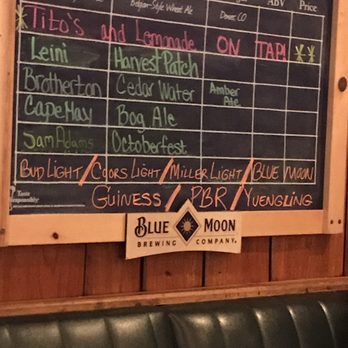 Belgian-Style Wheat Ale Denver, CO ABV Price
*Tito's and Lemonade ON TAP! **
Leini Harvest Patch
Brotherton Cedar Water Amber Ale
Cape May Bog Ale
Sam Adams Octoberfest
Bud Light / Coors Light / Miller Light / Blue Moon
Guiness / PBR / Yuengling
Taste Responsibly
BLUE MOON
BREWING COMPANY